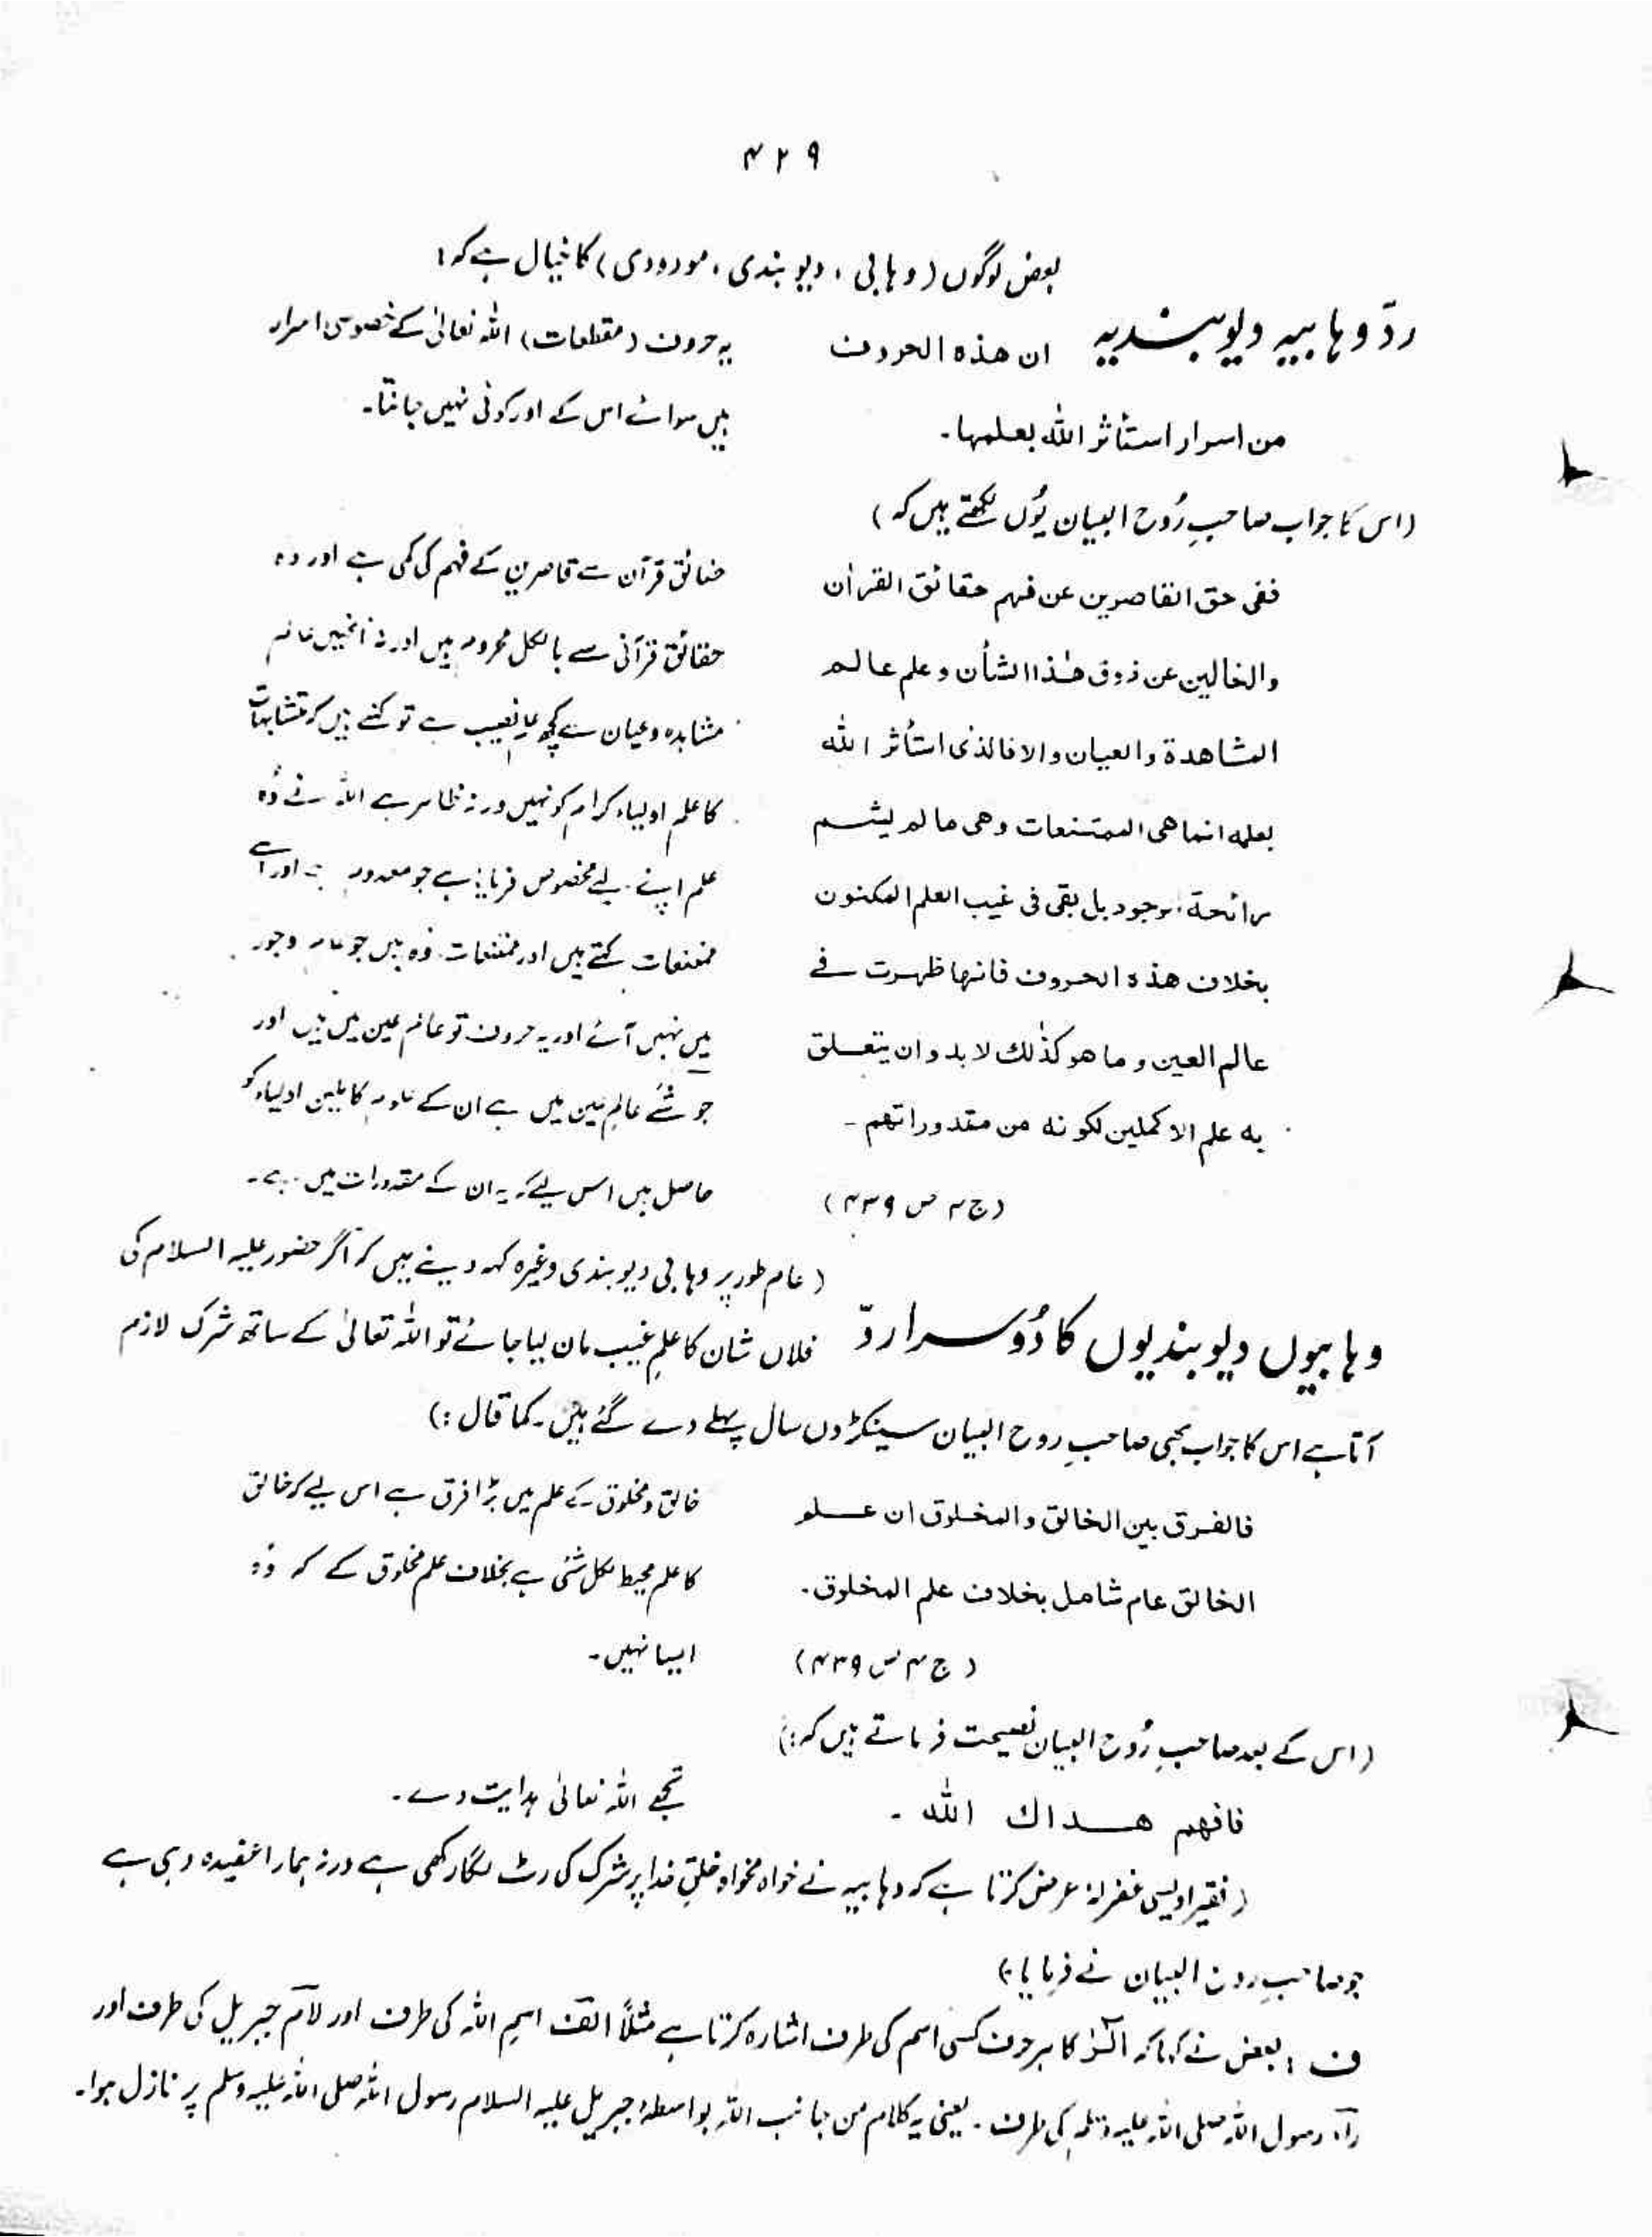 ۴۲۹
بعض لوگوں (وہابی ، دیوبندی ، مودودی) کا خیال ہے کہ :
ردّ وہابیہ دیوبندیہ
ان هذه الحروف
من اسرار استأثر الله بعلمها۔
یہ حروف (مقطعات) اللہ تعالیٰ کے خصوصی اسرار
ہیں سوائے اس کے اور کوئی نہیں جانتا۔
(اس کا جواب صاحبِ رُوح البیان یُوں لکھتے ہیں کہ)
ففی حق القاصرین عن فہم حقائق القرآن
والخالین عن ذوق ھٰذا الشأن و علم عالم
المشاهدة والعیان والا فالذی استأثر الله
بعلمه انما هی الممتنعات وهی ما لم یشم
رائحة الوجود بل بقی فی غیب العلم المکنون
بخلاف هذه الحروف فانها ظهرت فے
عالم العین و ما هو کذٰلك لا بد و ان یتعلق
به علم الاکملین لکونه من مقدوراتهم۔
(ج ۴ ص ۴۳۹)
حقائق قرآن سے قاصرین کے فہم کی کمی ہے اور وہ
حقائق قرآنی سے بالکل محروم ہیں اور نہ انھیں عالم
مشاہدہ و عیان سے کچھ نصیب ہے تو کہتے ہیں کہ متشابہات
کا علم اولیاء کرام کو نہیں ورنہ ظاہر ہے اللہ نے وُہ
علم اپنے لیے مخصوص فرمایا ہے جو معدوم ہے اور اسے
ممتنعات کہتے ہیں اور ممتنعات وُہ ہیں جو عالم وجود
میں نہیں آئے اور یہ حروف تو عالم عین میں ہیں اور
جو شَے عالمِ عین میں ہے ان کے علوم کاملین اولیاء کو
حاصل ہیں اس لیے کہ یہ ان کے مقدورات میں ہے۔
(عام طور پر وہابی دیوبندی وغیرہ کہہ دیتے ہیں کہ اگر حضور علیہ السلام کی
وہابیوں دیوبندیوں کا دُوسرا ردّ
فلاں شان کا علمِ غیب مان لیا جائے تو اللہ تعالیٰ کے ساتھ شرک لازم
آتا ہے اس کا جواب بھی صاحبِ روح البیان سینکڑوں سال پہلے دے گئے ہیں۔ کما قال :)
فالفرق بین الخالق والمخلوق ان علم
الخالق عام شامل بخلاف علم المخلوق۔
(ج ۴ ص ۴۳۹)
خالق و مخلوق کے علم میں بڑا فرق ہے اس لیے کہ خالق
کا علم محیط لکل شئی ہے بخلاف علم مخلوق کے کہ وُہ
ایسا نہیں۔
(اس کے بعد صاحبِ رُوح البیان نصیحت فرماتے ہیں کہ :)
فافهم هداك الله ۔
تجھے اللہ تعالیٰ ہدایت دے۔
(فقیر اویسی غفرلہٗ عرض کرتا ہے کہ وہابیہ نے خواہ مخواہ خلقِ خدا پر شرک کی رٹ لگا رکھی ہے ورنہ ہمارا عقیدہ وہی ہے
جو صاحبِ روح البیان نے فرمایا)
ف : بعض نے کہا کہ الٓرٰ کا ہر حرف کسی اسم کی طرف اشارہ کرتا ہے مثلاً الف اسمِ اللہ کی طرف اور لام جبریل کی طرف اور
راء رسول اللہ صلی اللہ علیہ وسلم کی طرف ۔ یعنی یہ کلام من جانب اللہ بواسطۂ جبریل علیہ السلام رسول اللہ صلی اللہ علیہ وسلم پر نازل ہوا۔